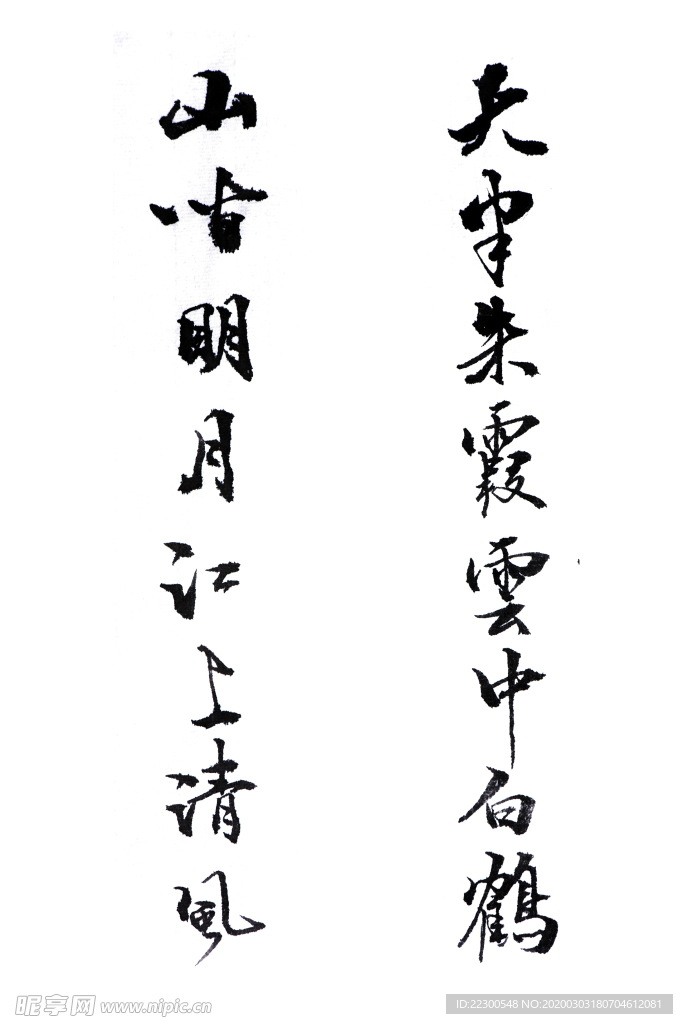 天半朱霞雲中白鶴
山間明月江上清風
昵享网 www.nipic.cn
ID:22300548 NO:20200303180704612081